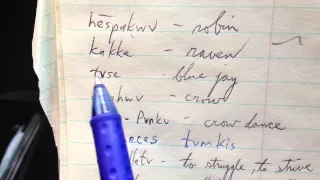 hēspakwv - robin
kakke - raven
tvse - blue jay
hwv - crow
Punkv - crow dance
nces tvmkis
lletv - to struggle, to strive